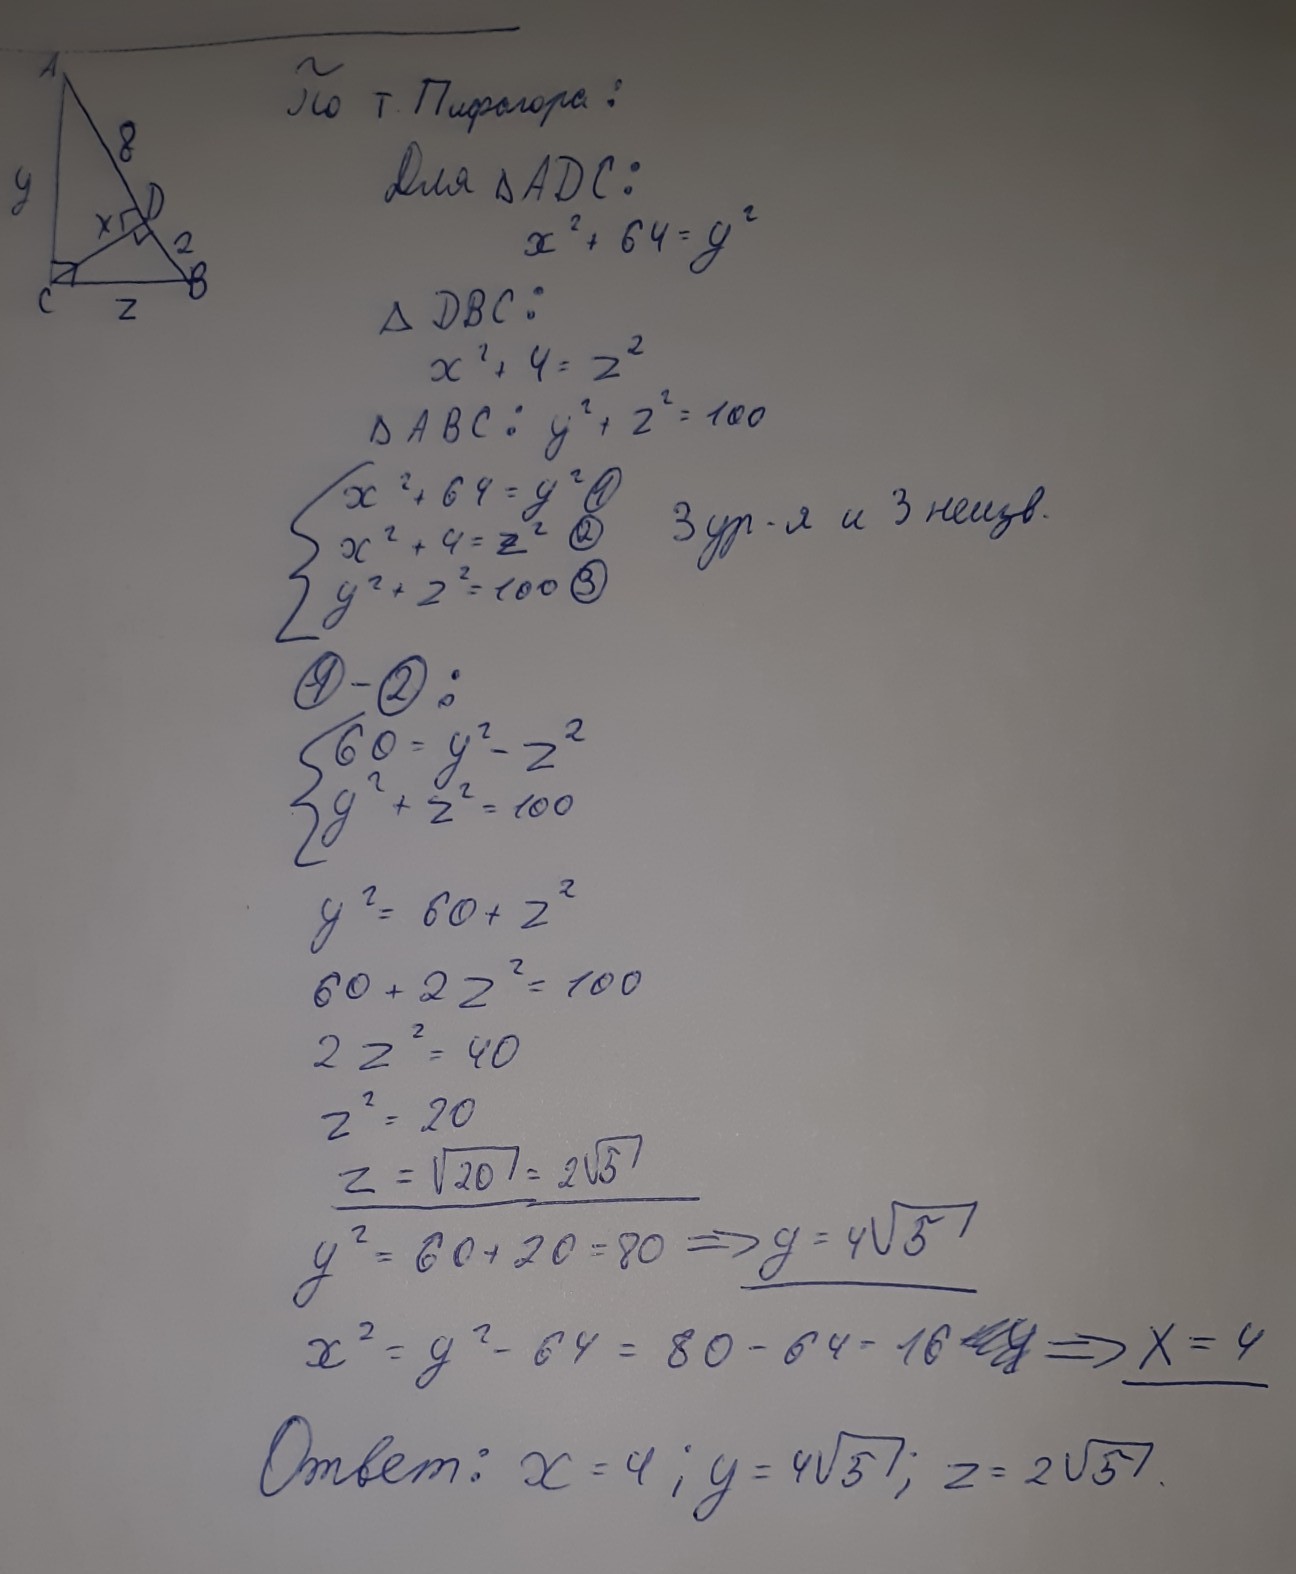 A
8
y
D
x
2
C
B
z
По т. Пифагора:
Для △ADC:
x² + 64 = y²
△ DBC:
x² + 4 = z²
△ABC: y² + z² = 100
x² + 64 = y² ①
x² + 4 = z² ②
y² + z² = 100 ③
3 ур-я и 3 неизв.
① - ② :
60 = y² - z²
y² + z² = 100
y² = 60 + z²
60 + 2z² = 100
2z² = 40
z² = 20
z = √20 = 2√5
y² = 60 + 20 = 80 => y = 4√5
x² = y² - 64 = 80 - 64 = 16 => x = 4
Ответ: x = 4; y = 4√5; z = 2√5.